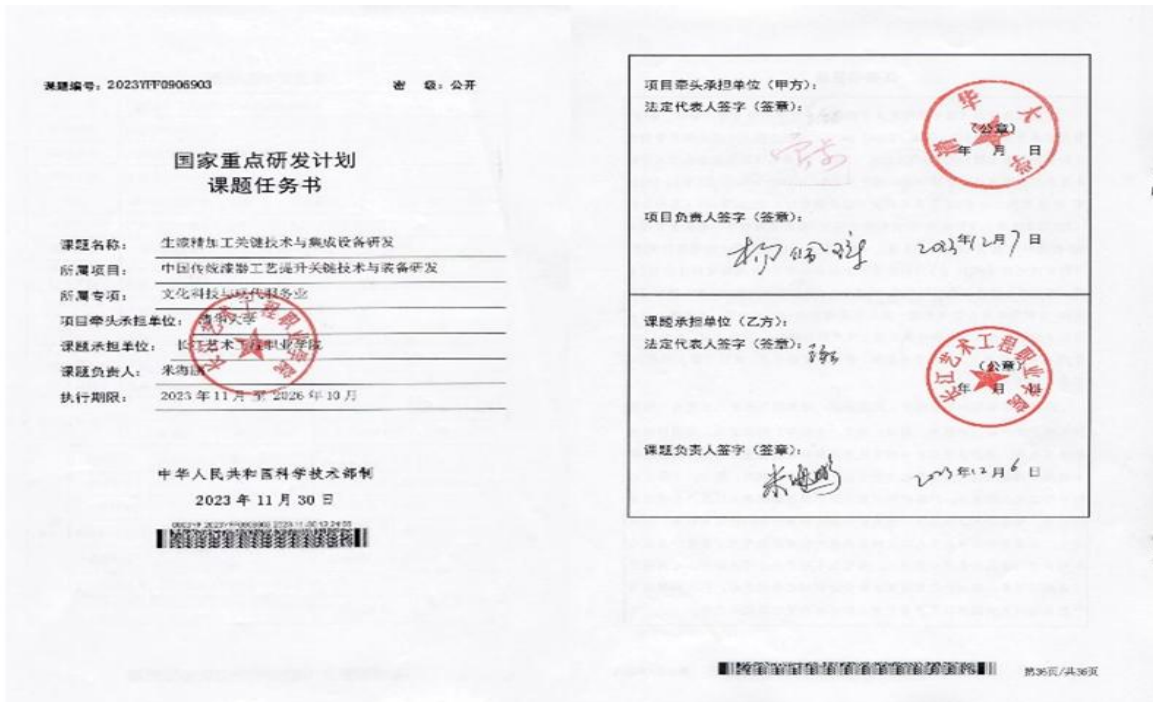 课题编号：2023YFF0906903
密 级：公开
国家重点研发计划
课题任务书
课题名称：生漆精加工关键技术与集成设备研发
所属项目：中国传统漆器工艺提升关键技术与装备研发
所属专项：文化科技与现代服务业
项目牵头承担单位：清华大学
课题承担单位：长江艺术工程职业学院
课题负责人：米海鹏
执行期限：2023年11月至2026年10月
中华人民共和国科学技术部制
2023年11月30日
项目牵头承担单位（甲方）：
法定代表人签字（签章）：
清华大学
（公章）
年 月 日
项目负责人签字（签章）：
2023年12月7日
课题承担单位（乙方）：
法定代表人签字（签章）：
长江艺术工程职业学院
（公章）
年 月 日
课题负责人签字（签章）：
米海鹏 2023年12月6日
第36页/共36页